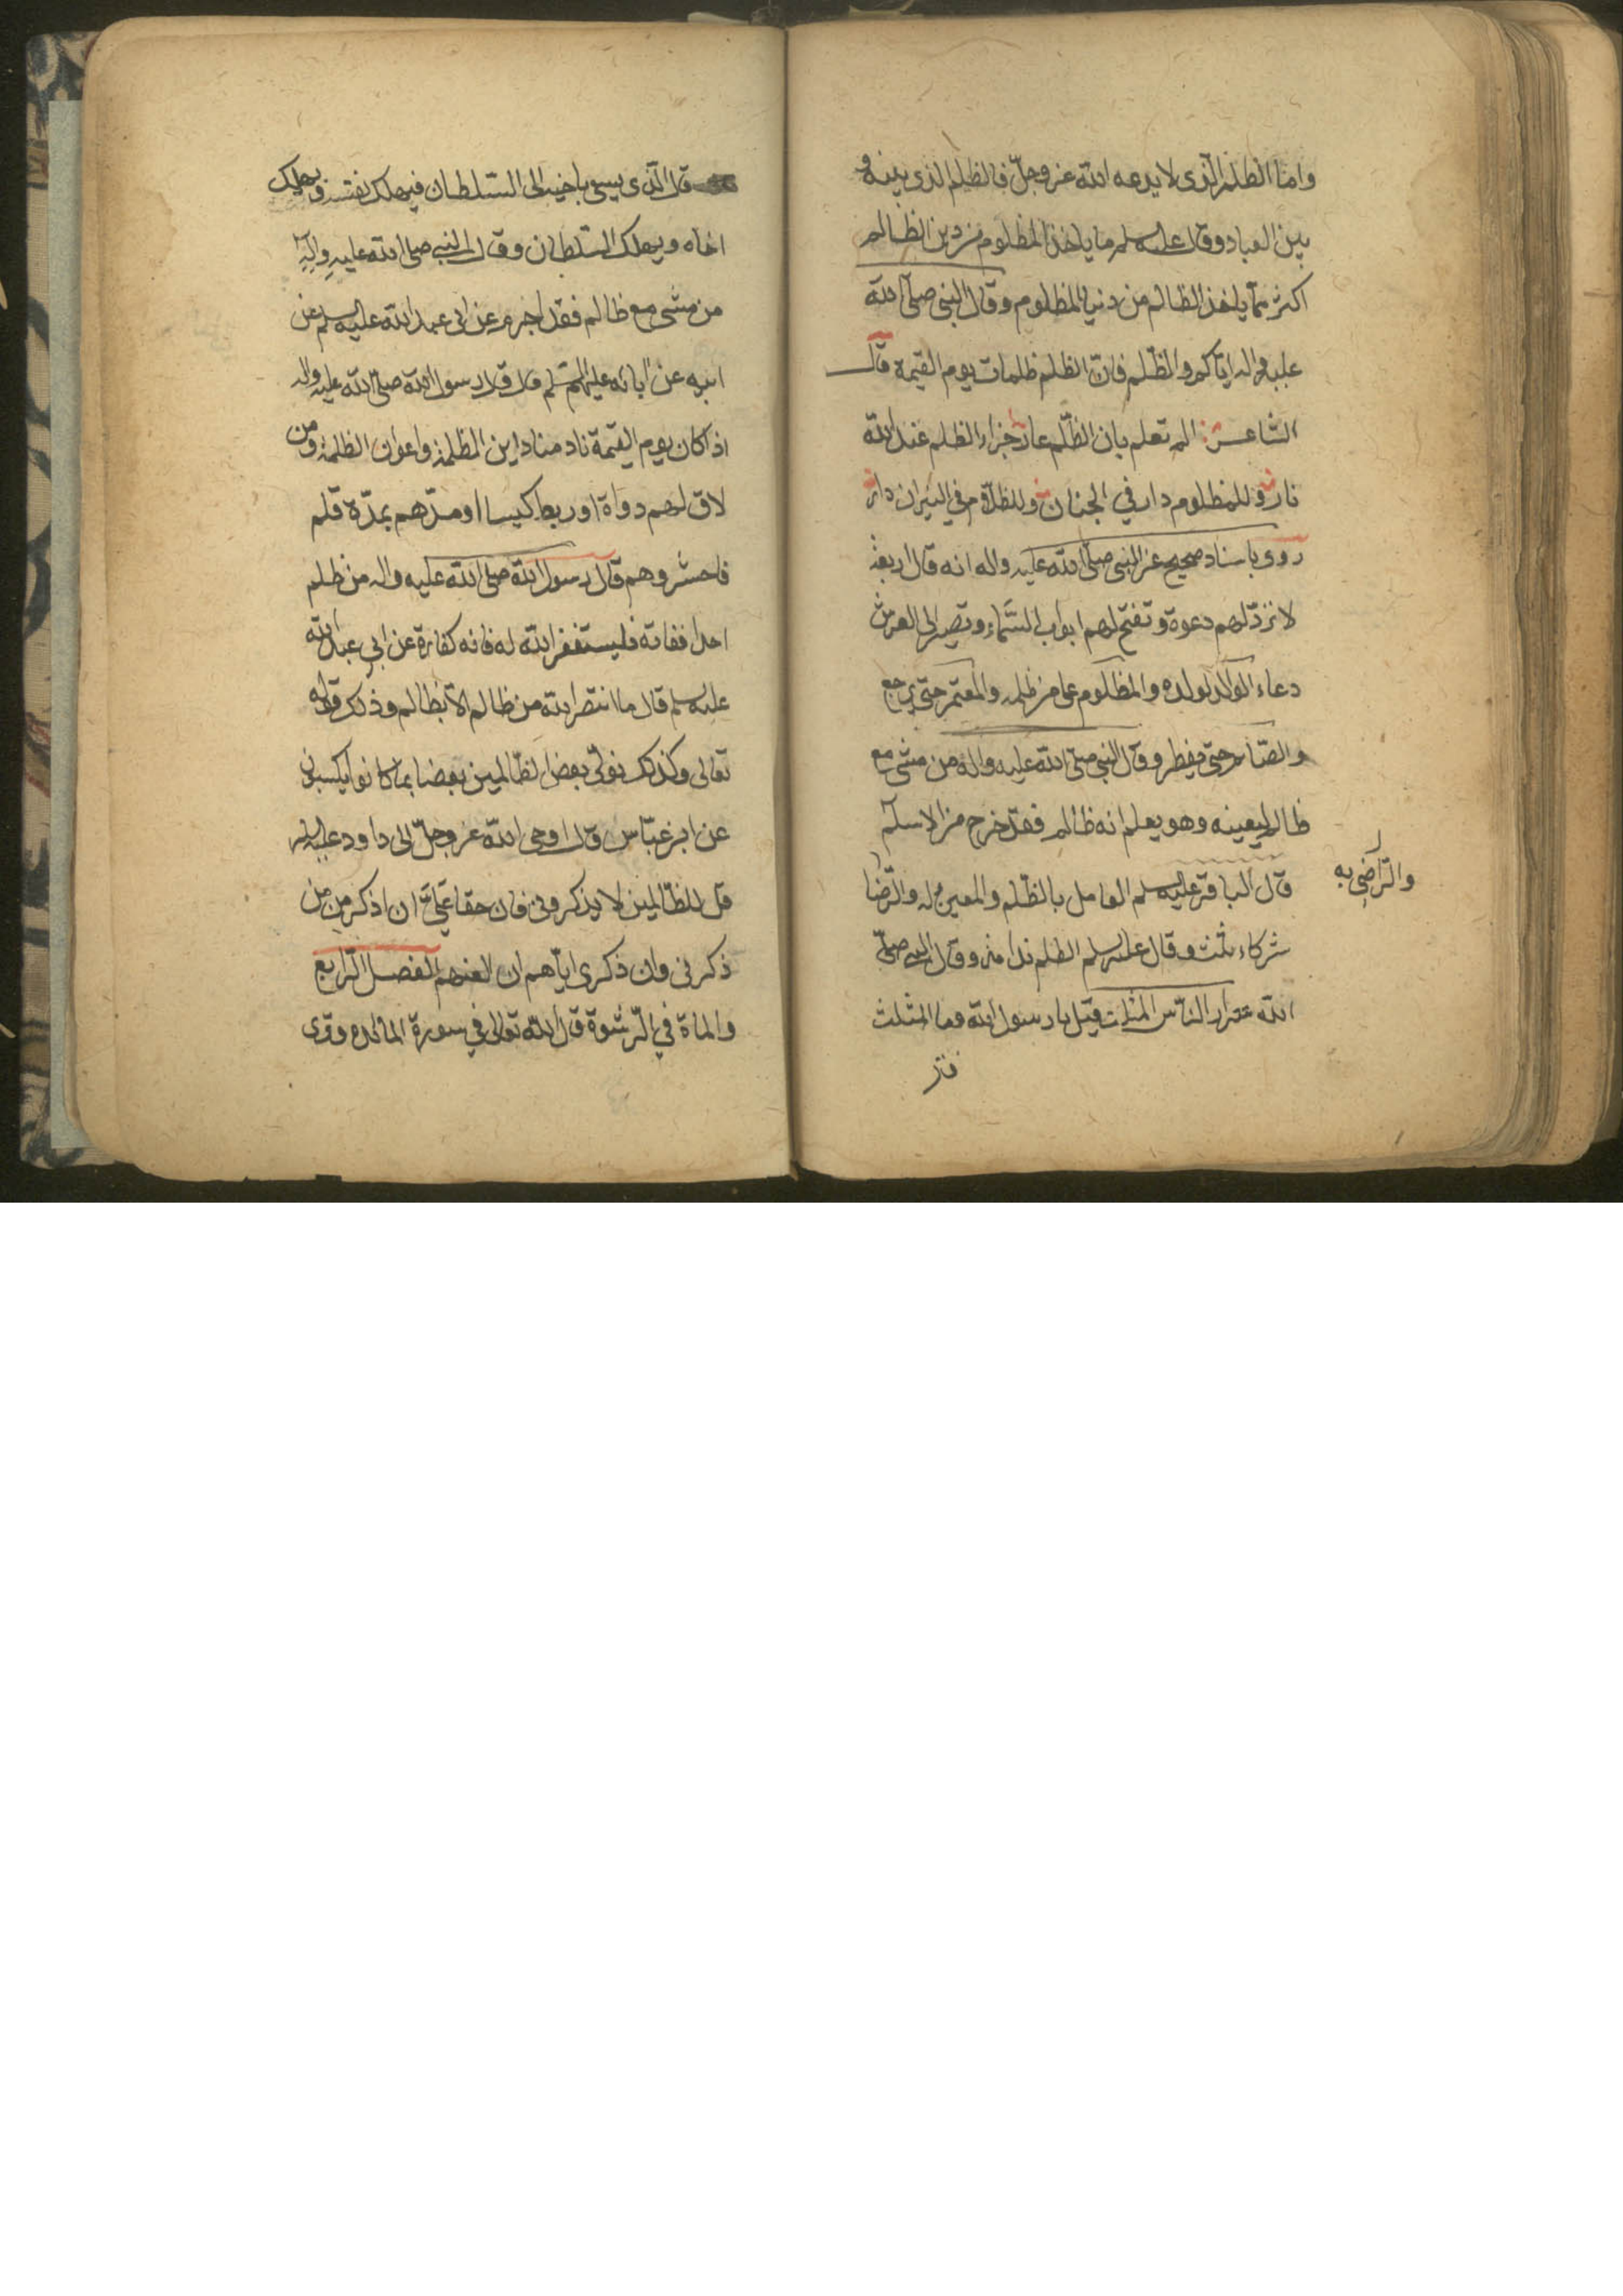 واما الظلم الذى لا يدعه الله عز وجل فالظلم الذى بينه و
بين العباد وقال عليه سلم ما ياخذ المظلوم من دين الظالم
اكثر مما ياخذ الظالم من دنيا المظلوم وقال النبى صلى الله
عليه واله اياكم والظلم فان الظلم ظلمات يوم القيمة قال
الشاعر الم تعلم بان الظلم عار جزاء الظلم عند الله
نار وللمظلوم دار في الجنان وللظلام في النيران دار
روى باسناد صحيح عن النبى صلى الله عليه واله انه قال اربعة
لا ترد لهم دعوة وتفتح لهم ابواب السماء وتصير الى العرش
دعاء الوالد لولده والمظلوم على من ظلمه والمعتمر حتى يرجع
والصائم حتى يفطر وقال النبى صلى الله عليه واله من مشى مع
ظالم ليعينه وهو يعلم انه ظالم فقد خرج من الاسلام
قال الباقر عليه السلم العامل بالظلم والمعين له والرضا
والراضى به
شركاء ثلث وقال عليه سلم الظلم ندامة وقال النبى صلى
الله شرار الناس المثلث قيل يا رسول الله وما المثلث
قال الذى يسعى باخيه الى السلطان فيهلك نفسه ويهلك
اخاه ويهلك السلطان وقال النبى صلى الله عليه واله
من مشى مع ظالم فقد اجرم عن ابى عبد الله عليه السلم عن
ابيه عن ابائه عليهم السلم قال قال رسول الله صلى الله عليه واله
اذا كان يوم القيمة ناد مناد اين الظلمة واعوان الظلمة ومن
لاق لهم دواة او ربط كيسا او مدهم بمدة قلم
فاحشروهم قال رسول الله صلى الله عليه واله من ظلم
احدا ففاته فليستغفر الله له فانه كفارة عن ابي عبد الله
عليه سلم قال ما انتصر الله من ظالم الا بظالم وذلك قوله
تعالى وكذلك نولى بعض الظالمين بعضا بما كانوا يكسبون
عن ابن عباس قال اوحى الله عز وجل الى داود عليه السلم
قل للظالمين لا يذكرونى فان حقا على ان اذكر من
ذكرنى وان ذكرى اياهم ان العنهم الفصل الرابع
والماة في الرشوة قال الله تعالى في سورة المائده وترى